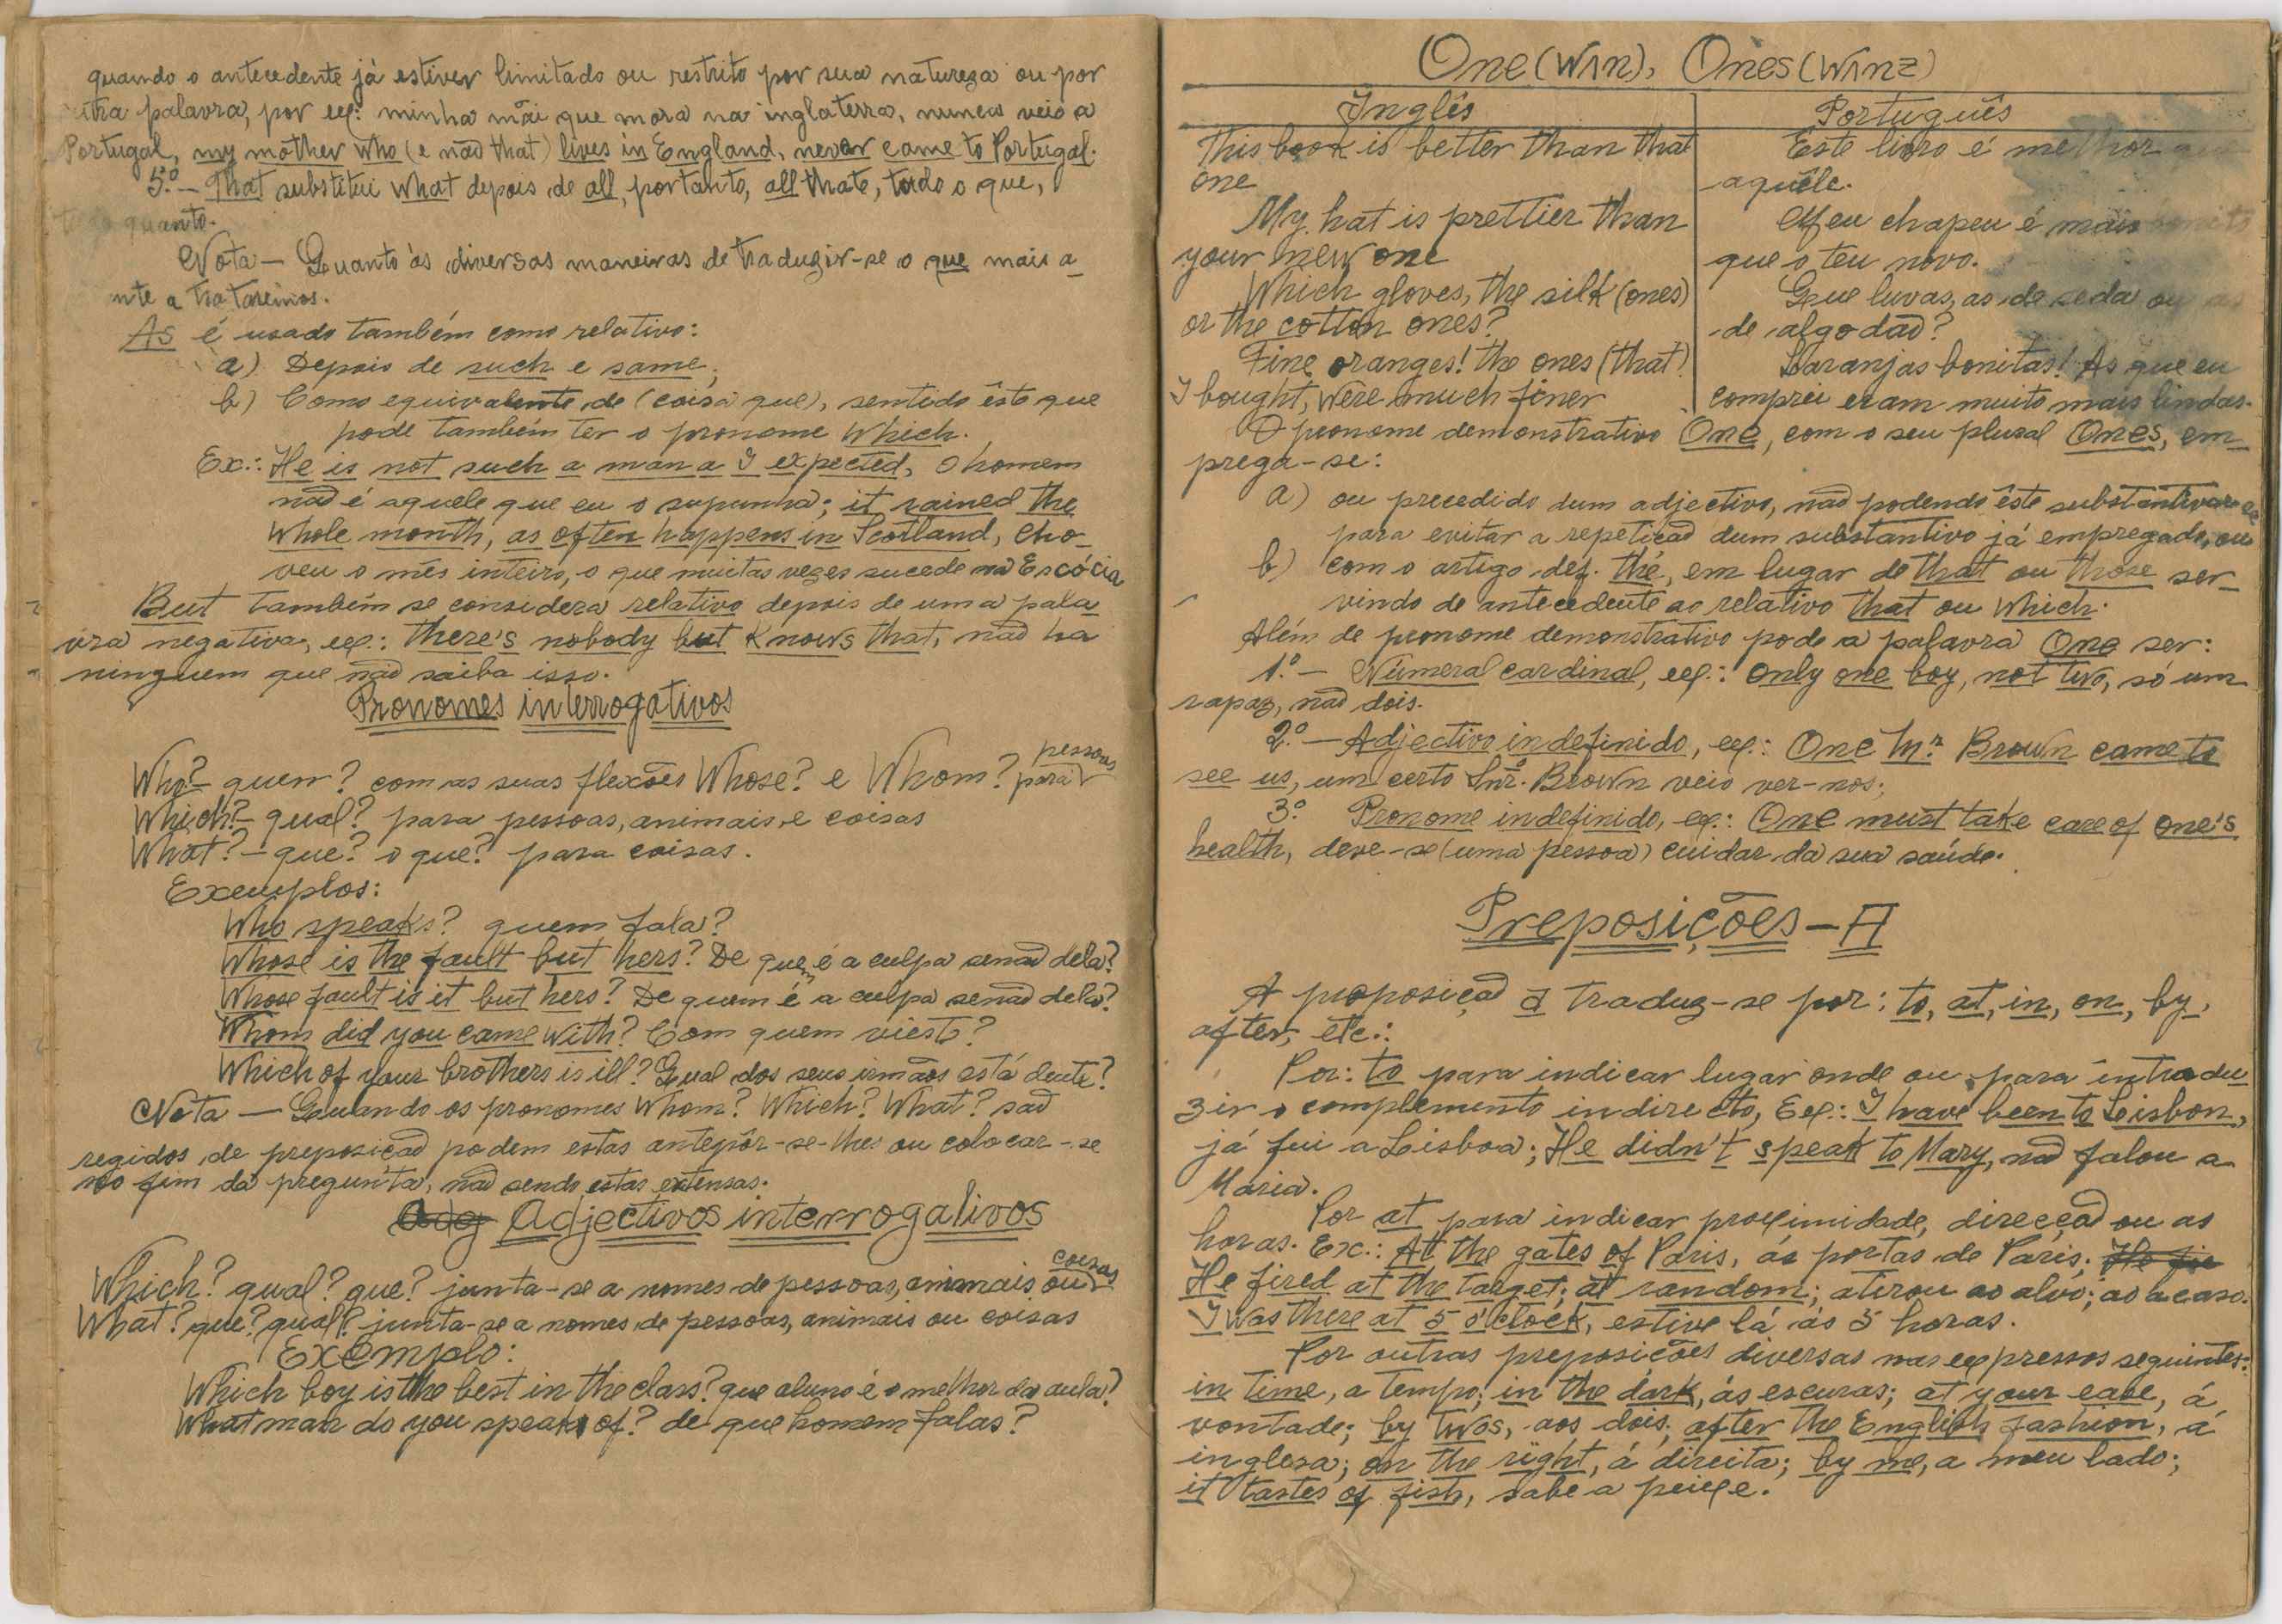 quando o antecedente já estiver limitado ou restrito por sua natureza ou por
utra palavra, por ex: minha mãi que mora na inglaterra, nunca veio a
Portugal, my mother who (e não that) lives in England, never came to Portugal.
5.º — That substitui what depois de all, portanto, all thate, tudo o que,
tudo quanto.
Nota — Quanto às diversas maneiras de traduzir-se o que mais a-
nte a trataremos.
As é usado também como relativo:
a) Depois de such e same;
b) Como equivalente de (coisa que), sentido êste que
pode também ter o pronome which.
Ex.: He is not such a man a I expected, o homem
não é aquele que eu o supunha; it rained the
whole month, as often happens in Scotland, cho-
veu o mês inteiro, o que muitas vezes sucede na Escócia
But também se considera relativo depois de uma pala
vra negativa, ex.: there's nobody but knows that, não ha
ninguem que não saiba isso.
Pronomes interrogativos
Who? — quem? com as suas flexões Whose? e Whom? para pessoas
Which? — qual? para pessoas, animais e coisas
What? — que? o que? para coisas.
Exemplos:
Who speaks? quem fala?
Whose is the fault but hers? De quem é a culpa senão dela?
Whose fault is it but hers? De quem é a culpa senão dela?
Whom did you came with? Com quem vieste?
Which of your brothers is ill? Qual dos seus irmãos está dente?
Nota — Quando os pronomes Whom? Which? What? são
regidos de preposição podem estas antepôr-se-lhes ou colocar-se
no fim da pregunta, não sendo estas extensas.
Adj Adjectivos interrogativos
Which? qual? que? junta-se a nomes de pessoas, animais ou coisas
What? que? qual? junta-se a nomes de pessoas, animais ou coisas
Exemplo:
Which boy is the best in the class? que aluno é o melhor da aula?
What man do you speak of? de que homem falas?
One (wʌn), Ones (wʌnz)
Inglês Português
This book is better than that Este livro é melhor que
one aquêle.
My hat is prettier than Meu chapeu é mais bonito
your new one que o teu novo.
Which gloves, the silk (ones) Que luvas, as de seda ou as
or the cotton ones? de algodão?
Fine oranges! the ones (that) Laranjas bonitas! As que eu
I bought, were much finer comprei eram muito mais lindas.
O pronome demonstrativo One, com o seu plural Ones, em-
prega-se:
a) ou precedido dum adjectivo, não podendo êste substantivar-se
para evitar a repetição dum substantivo já empregado, ou
b) com o artigo def. the, em lugar de that ou those ser-
vindo de antecedente ao relativo that ou which.
Além de pronome demonstrativo pode a palavra One ser:
1.º — Numeral cardinal, ex.: only one boy, not two, só um
rapaz, não dois.
2.º — Adjectivo indefinido, ex.: One Mr. Brown came to
see us, um certo Snr. Brown veio ver-nos;
3.º Pronome indefinido, ex.: One must take care of one's
health, deve-se (uma pessoa) cuidar da sua saúde.
Preposições — A
A preposição a traduz-se por: to, at, in, on, by,
after, etc.:
Por: to para indicar lugar onde ou para introdu
zir o complemento indirecto, Ex.: I have been to Lisbon,
já fui a Lisboa; He didn't speak to Mary, não falou a
Maria.
Por at para indicar proximidade, direcção ou as
horas. Ex.: At the gates of Paris, ás portas de Paris; He fir
He fired at the target; at random; atirou ao alvo; ao acaso.
I was there at 5 o'clock, estive lá ás 5 horas.
Por outras preposicões diversas nas expressos seguintes:
in time, a tempo; in the dark, ás escuras; at your ease, á
vontade; by twos, aos dois; after the English fashion, á
inglesa; on the right, á direita; by me, a meu lado;
it tastes of fish, sabe a peixe.